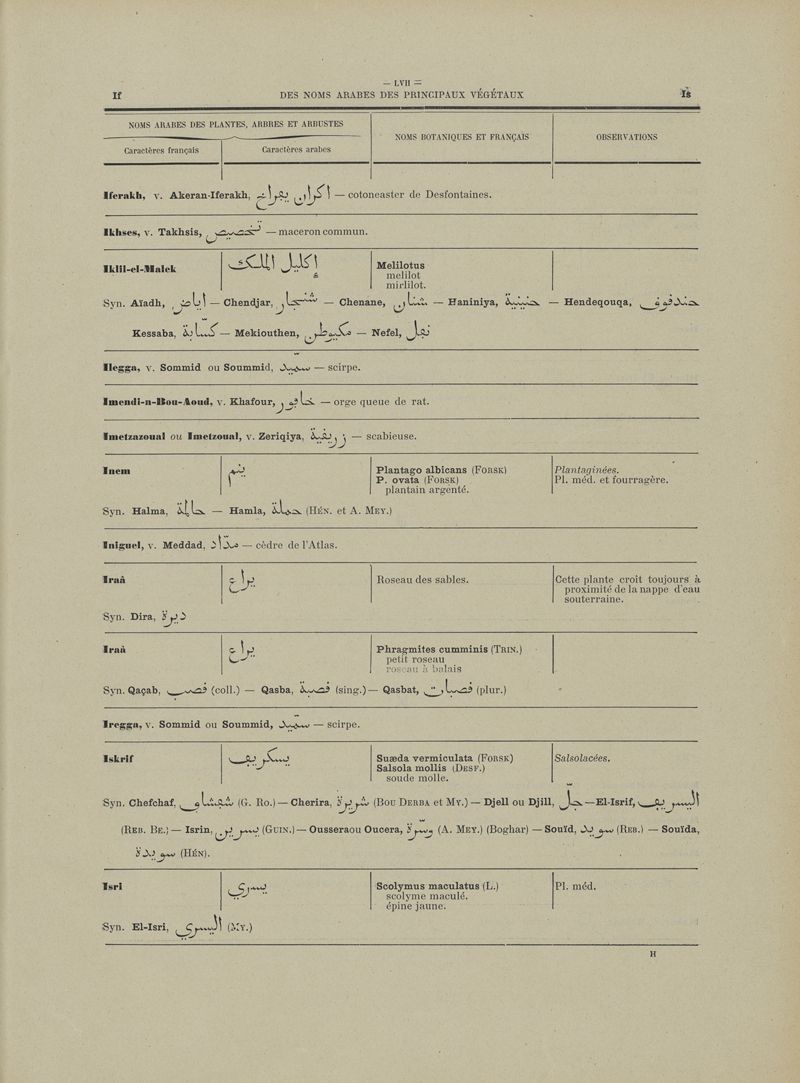 — LVII —
If DES NOMS ARABES DES PRINCIPAUX VÉGÉTAUX Is
NOMS ARABES DES PLANTES, ARBRES ET ARBUSTES
NOMS BOTANIQUES ET FRANÇAIS
OBSERVATIONS
Caractères français
Caractères arabes
Iferakh, v. Akeran-Iferakh, — cotoneaster de Desfontaines.
Ikhses, v. Takhsis, — maceron commun.
Iklil-el-Malek اكليل الملك Melilotus
melilot
mirlilot.
Syn. Aïadh, — Chendjar, — Chenane, — Haniniya, — Hendeqouqa,
Kessaba, — Mekiouthen, — Nefel, نفل
Ilegga, v. Sommid ou Soummid, — scirpe.
Imendi-n-Bou-Aoud, v. Khafour, خافور — orge queue de rat.
Imetzazoual ou Imetzoual, v. Zeriqiya, زريقية — scabieuse.
Inem ينم Plantago albicans (Forsk) Plantaginées.
P. ovata (Forsk) Pl. méd. et fourragère.
plantain argenté.
Syn. Halma, حالمة — Hamla, حملة (Hén. et A. Mey.)
Iniguel, v. Meddad, مداد — cèdre de l'Atlas.
Iraâ يراع Roseau des sables. Cette plante croit toujours à
proximité de la nappe d'eau
souterraine.
Syn. Dira, ديرة
Iraâ يراع Phragmites cumminis (Trin.)
petit roseau
roseau à balais
Syn. Qaçab, (coll.) — Qasba, (sing.) — Qasbat, (plur.)
Iregga, v. Sommid ou Soummid, — scirpe.
Iskrif يسكريف Suæda vermiculata (Forsk) Salsolacées.
Salsola mollis (Desf.)
soude molle.
Syn. Chefchaf, (G. Ro.) — Cherira, شريرة (Bou Derba et My.) — Djell ou Djill, جل — El-Isrif,
(Reb. Be.) — Isrin, يسرين (Guin.) — Ousseraou Oucera, (A. Mey.) (Boghar) — Souïd, سويد (Reb.) — Souïda,
سويدة (Hén).
Isri يسري Scolymus maculatus (L.) Pl. méd.
scolyme maculé.
épine jaune.
Syn. El-Isri, اليسري (My.)
H